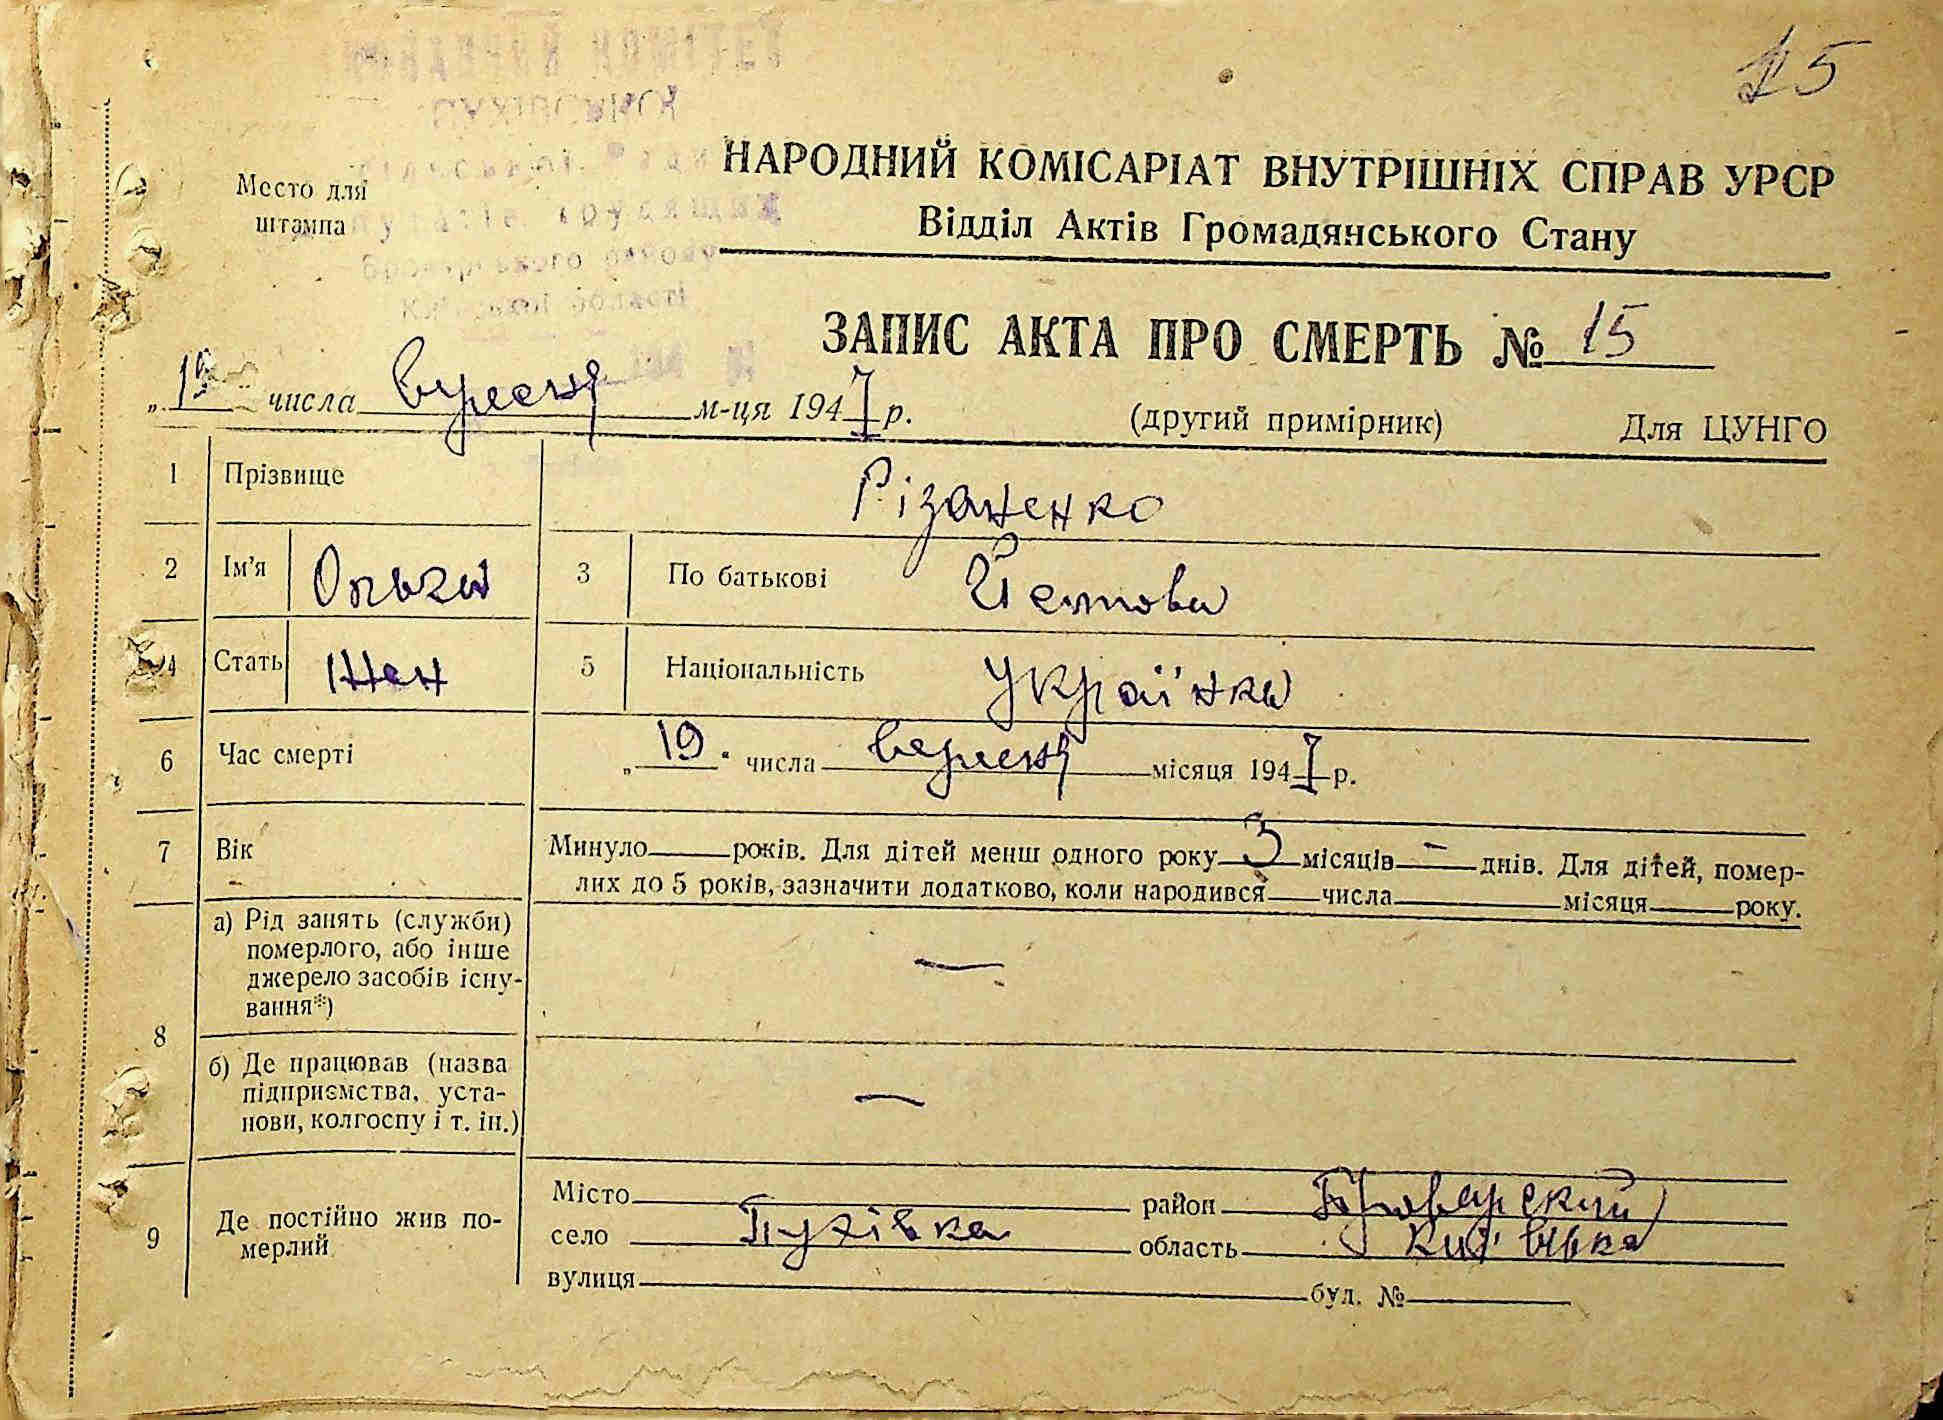 15
КОМІТЕТ
НАРОДНИЙ КОМІСАРІАТ ВНУТРІШНІХ СПРАВ УРСР
Место для
штампа
Відділ Актів Громадянського Стану
області
ЗАПИС АКТА ПРО СМЕРТЬ № 15
„19 числа вересня м-ця 1947 р. (другий примірник) Для ЦУНГО
1 Прізвище Різаненко
2 Ім'я Ольга 3 По батькові
4 Стать Жен 5 Національність Українка
6 Час смерті „19" числа вересня місяця 1947 р.
7 Вік Минуло року років. Для дітей менш одного року 3 місяців — днів. Для дітей, помер-
лих до 5 років, зазначити додатково, коли народився числа місяця року.
а) Рід занять (служби)
померлого, або інше
джерело засобів існу-
вання*) —
8
б) Де працював (назва
підприємства, уста-
нови, колгоспу і т. ін.) —
9 Де постійно жив по-
мерлий
Місто район Броварский
село Пухівка область Київська
вулиця буд. №